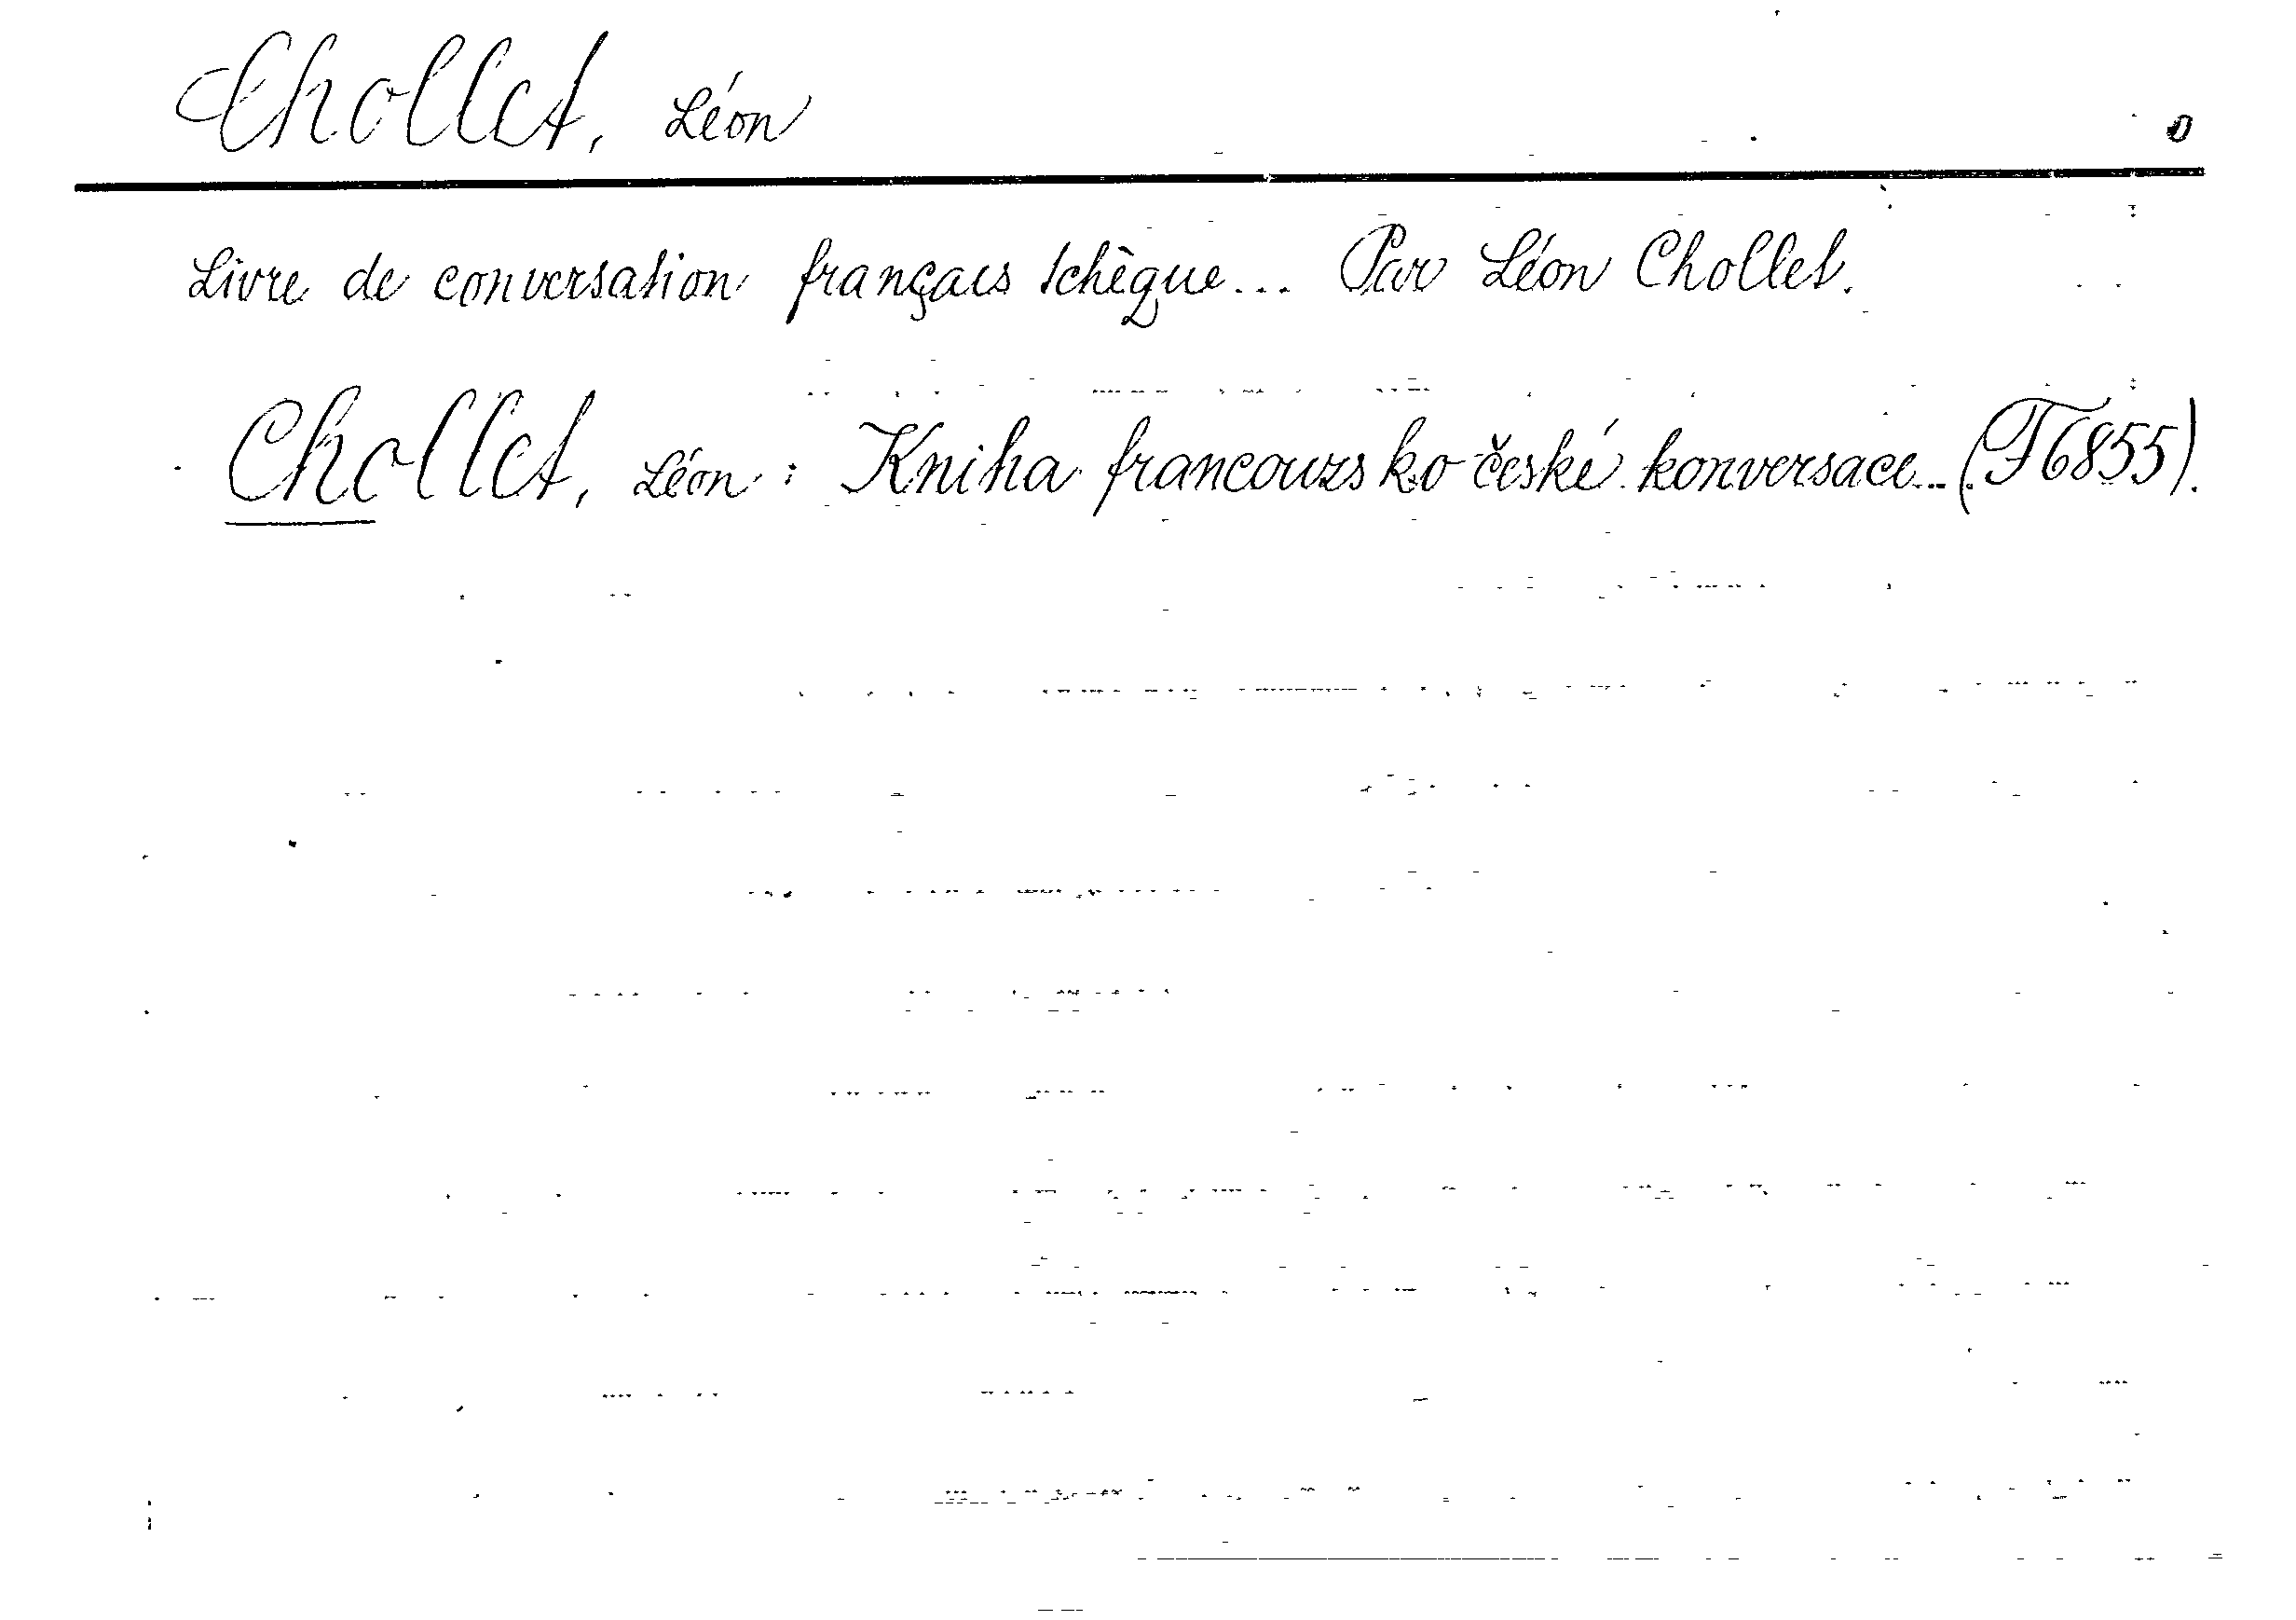 Chollet, Léon
Livre de conversation français tchèque... Par Léon Chollet.
Chollet, Léon: Kniha francouzsko-české konversace... (F6855).